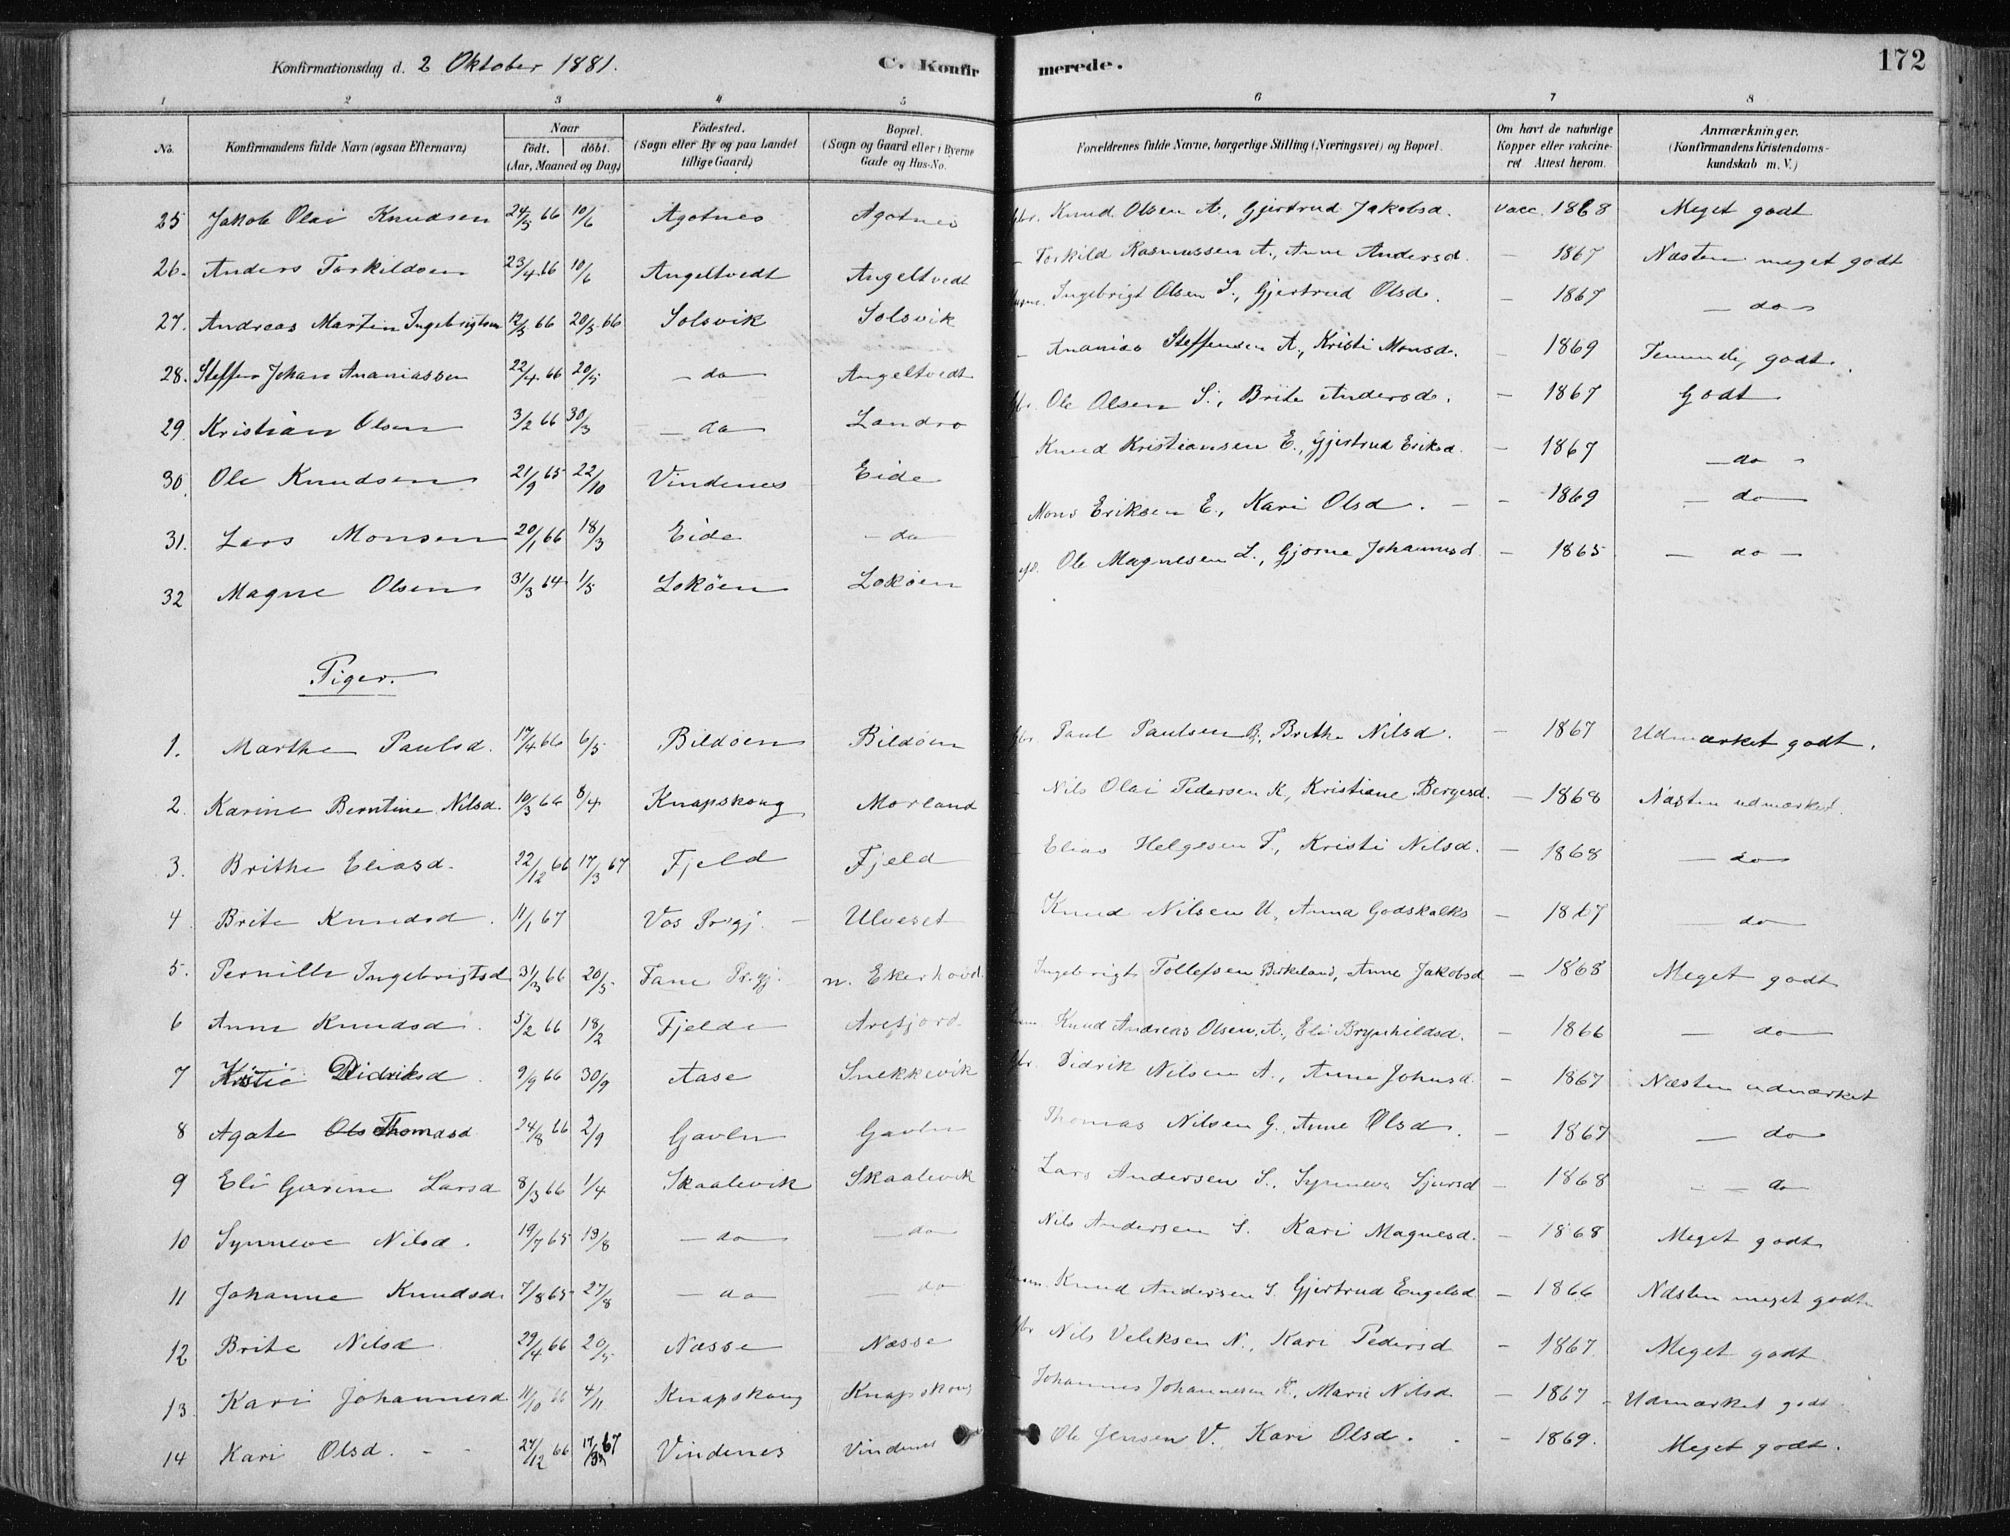 Konfirmationsdag d. 2 Oktober 1881. C. Konfirmerede. 172
1 2 3 4 5 6 7 8
No. Konfirmandens fulde Navn (ogsaa Efternavn) Naar født. døbt. (Aar, Maaned og Dag) Födested. (Sogn eller By og paa Landet tillige Gaard) Bopæl. (Sogn og Gaard eller i Byerne Gade og Hus-No. Forældrenes fulde Navne, borgerlige Stilling (Næringsvei) og Bopæl. Om havt de naturlige Kopper eller vakcineret Attest herom. Anmærkninger. (Konfirmandens Kristendomskundskab m. V.)
25 Jakob Olai Knudsen 24/5 66 10/6 Agotnes Agotnes Knud Olsen A, Gjertrud Jakobsd. vacc. 1868 Meget godt
26. Anders Torkildsen 23/4 66 10/6 Angeltvedt Angeltvedt Torkild Rasmussen A., Anne Andersd. – 1867 Næsten meget godt
27. Andreas Martin Ingebrigtsen 12/3 66 20/5 66 Solsvik Solsvik Ingebrigt Olsen S., Gjertrud Olsd. – 1867 – do –
28. Steffen Johan Ananiassen 22/4 66 20/5 – do – Angeltvedt Ananias Steffensen A., Kristi Monsd. – 1869 Temmelig godt.
29. Kristian Olsen 3/2 66 30/3 – do – Landro Ole Olsen S., Brite Andersd. – 1867 Godt
30. Ole Knudsen 21/9 65 22/10 Vindenes Eide Knud Kristiansen E., Gjertrud Eriksd. – 1867 – do –
31. Lars Monsen 20/1 66 18/3 Eide – do – Mons Eriksen E., Kari Olsd. – – 1869 – do –
32 Magne Olsen 31/3 64 1/5 Lokøen Lokøen Ole Magnesen L., Gjøsne Johannesd. – 1865 – do –
Piger.
1. Marthe Paulsd. 17/4 66 6/5 Bildøen Bildøen Paul Paulsen B., Brithe Nilsd. – 1867 Udmærket godt.
2. Karine Berntine Nilsd. 10/3 66 8/4 Knapskoug Morland Nils Olai Pedersen K., Kristiane Bergesd. – 1868 Næsten udmærket.
3. Brithe Eliasd. 22/12 66 17/3 67 Fjeld Fjeld Elias Helgesen F., Kristi Nilsd. – 1868 – do –
4. Brite Knudsd. 11/1 67 Vos Prgj. – Ulveset Knud Nilsen U., Anna Godskalks – 1867 – do
5. Pernille Ingebrigtsd 31/3 66 20/5 Fane Prgj. n. Ekerhovd. Ingebrigt Tollefsen Birkeland, Anne Jakobsd – 1868 Meget godt
6 Anne Knudsd. 5/2 66 18/2 Fjelde Arefjord. Knud Andreas Olsen A., Eli Brynhildsd. – 1866 – do –
7 Kristie Didriksd. 9/9 66 30/9 Aase Snekkevik Didrik Nilsen A., Anne Johnsd. – 1867 Næsten udmærket
8 Agate Ols Thomasd 24/8 66 2/9 Gavlen Gavlen Thomas Nilsen G., Anne Olsd. – 1867 – do –
9 Eli Gurine Larsd 8/3 66 1/4 Skaalevik Skaalevik Lars Andersen S., Synneve Sjursd – 1868 – – do
10 Synneve Nilsd. 19/7 65 13/8 – do – – do – Nils Andersen S. Kari Magnesd. – 1868 Meget godt
11 Johanne Knudsd. 7/8 65 27/8 – do – – do Knud Andersen S. Gjertrud Engelsd – 1866 Næsten meget godt
12 Brite Nilsd 29/4 66 20/5 Næsse Næsse Nils Veliksen N., Kari Pedersd – 1867. Meget godt
13. Kari Johannesd 11/10 66 4/11 Knapskoug Knapskoug Johannes Johannesen K., Marie Nilsd. – 1867 Udmærket godt
14 Kari Olsd. – – 27/12 66 17/3 67 Vindenes Vindenes Ole Jensen V. Kari Olsd. – 1869. Meget godt.